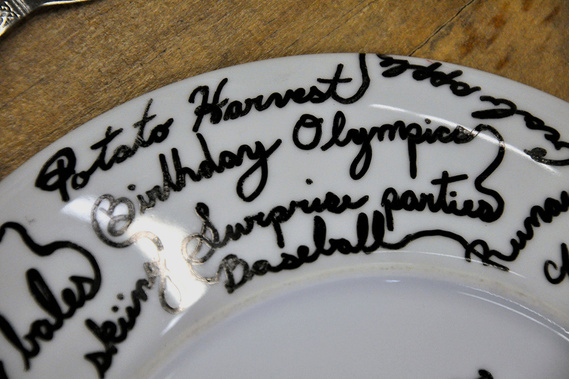 Potato Harvest
Birthday Olympics
Surprise parties
Baseball
skiing
bales